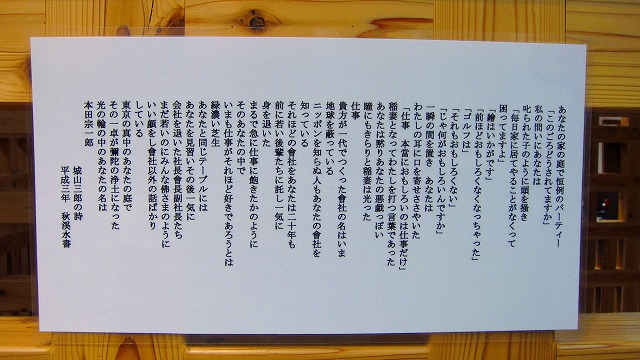 あなたの家の庭で恒例のパーティー
「このごろどうされてますか」
私の問いにあなたは
叱られた子のように頭を掻き
「毎日家に居てやることがなくって
困ってますよ」
「繪はいかがです」
「前ほどおもしろくなくなっちゃった」
「ゴルフは」
「それもおもしろくない」
「じゃ何がおもしろいんですか」
一瞬の間を置き あなたは
わたしの耳に口を寄せささやいた
「仕事 本當におもしろいのは仕事だけ」
稲妻となりわたしを打つ言葉であった
あなたは黙りあなたの悪戯っぽい
瞳にもきらりと稲妻は光った
仕事
貴方が一代でつくった會社の名はいま
地球を蔽っている
ニッポンを知らぬ人もあなたの會社を
知っている
それほどの會社をあなたは二十年も
前に若い後輩たちに託し一気に
身を退いた
まるで急に仕事に飽きたかのように
そのあなたの中で
いまも仕事がそれほど好きであろうとは
緑濃い芝生
あなたと同じテーブルには
あなたを見習いその後一気に
会社を退いた社長副社長たち
まだ若いのにみんな佛さまのように
いい顔をし會社以外の話ばかり
している
東京の真中のあなたの庭で
その一卓が彌陀の浄土になった
光の輪の中のあなたの名は
本田宗一郎
城山三郎の詩
平成三年 秋溪水書